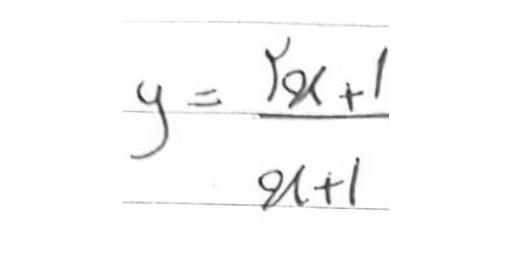 y = (۲x+1)/(x+1)